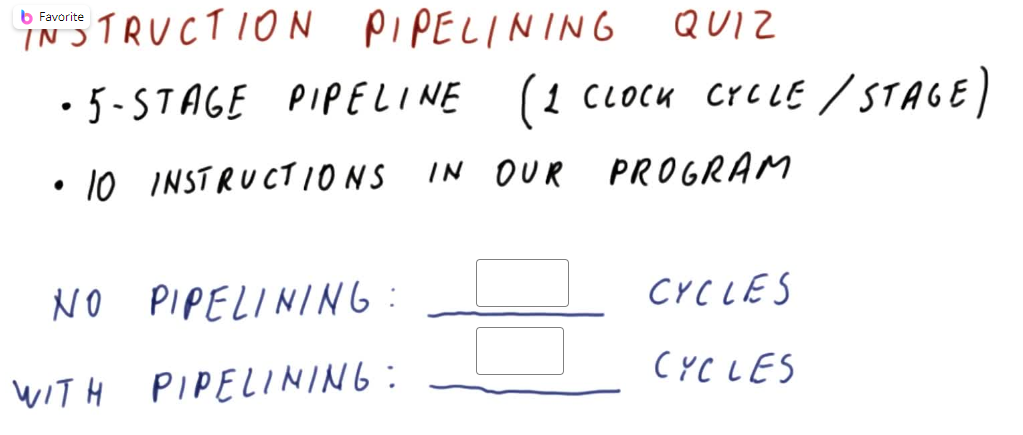 Favorite
INSTRUCTION PIPELINING QUIZ
• 5-STAGE PIPELINE (1 CLOCK CYCLE / STAGE)
• 10 INSTRUCTIONS IN OUR PROGRAM
NO PIPELINING: CYCLES
WITH PIPELINING: CYCLES